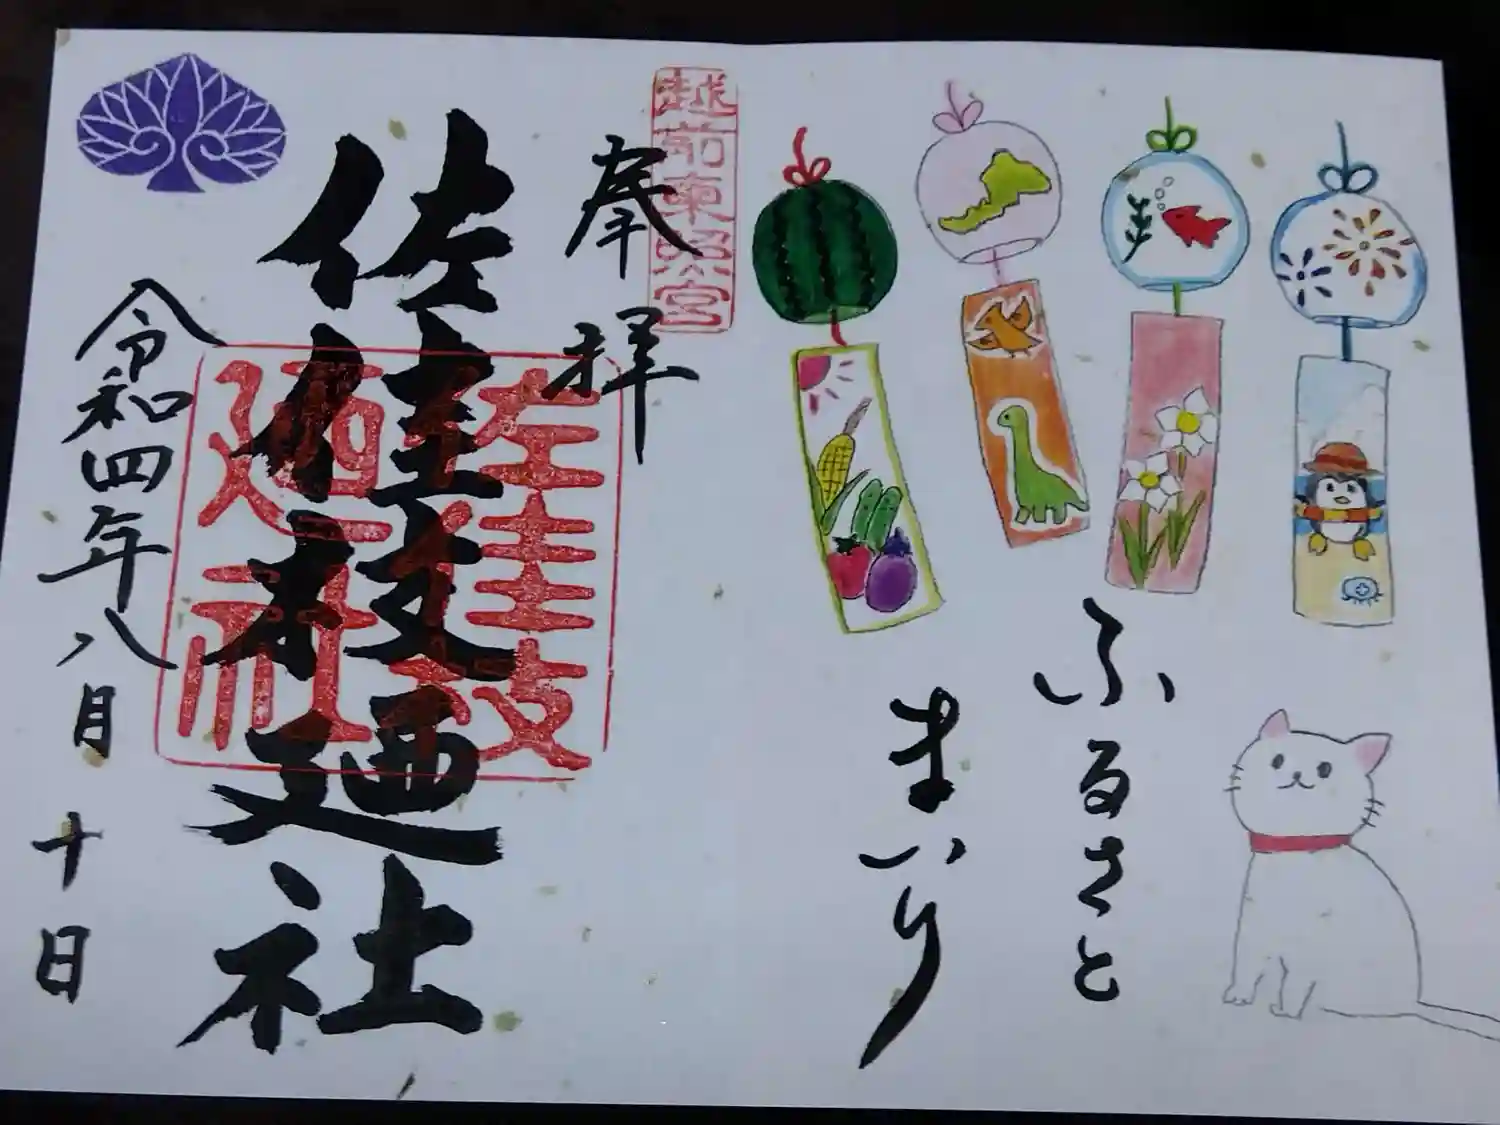 ふるさと
まいり
越前東照宮
奉拝
佐佳枝廼社
佐佳枝
廼社
令和四年八月十日